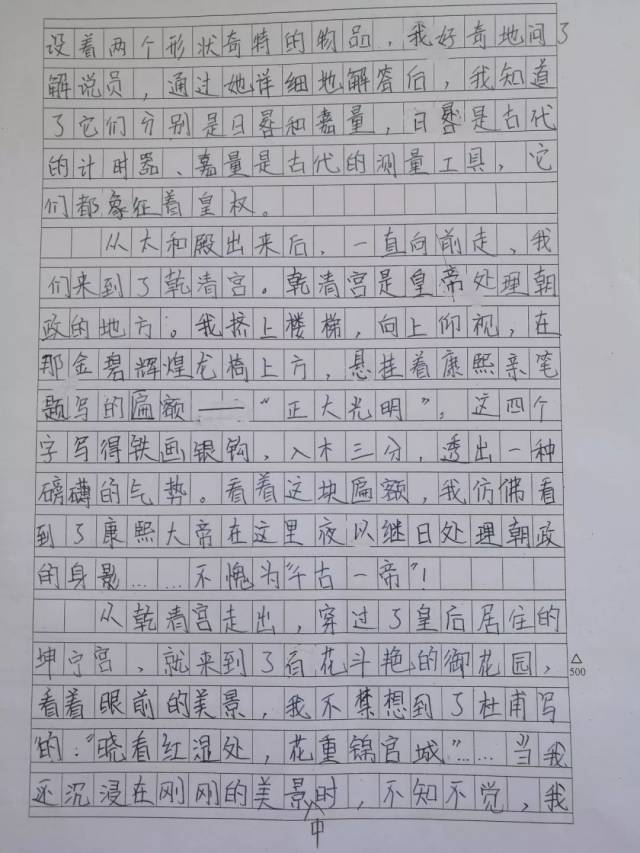 设着两个形状奇特的物品，我好奇地问了
解说员，通过她详细地解答后，我知道
了它们分别是日晷和嘉量，日晷是古代
的计时器、嘉量是古代的测量工具，它
们都象征着皇权。
从太和殿出来后，一直向前走，我
们来到了乾清宫。乾清宫是皇帝处理朝
政的地方。我挤上楼梯，向上仰视，在
那金碧辉煌龙椅上方，悬挂着康熙亲笔
题写的匾额——“正大光明”。这四个
字写得铁画银钩，入木三分，透出一种
磅礴的气势。看着这块匾额，我仿佛看
到了康熙大帝在这里夜以继日处理朝政
的身影……不愧为“千古一帝”！
从乾清宫走出，穿过了皇后居住的
坤宁宫，就来到了百花斗艳的御花园，
△
500
看着眼前的美景，我不禁想到了杜甫写
的：“晓看红湿处，花重锦官城”……当我
还沉浸在刚刚的美景时，不知不觉，我
中